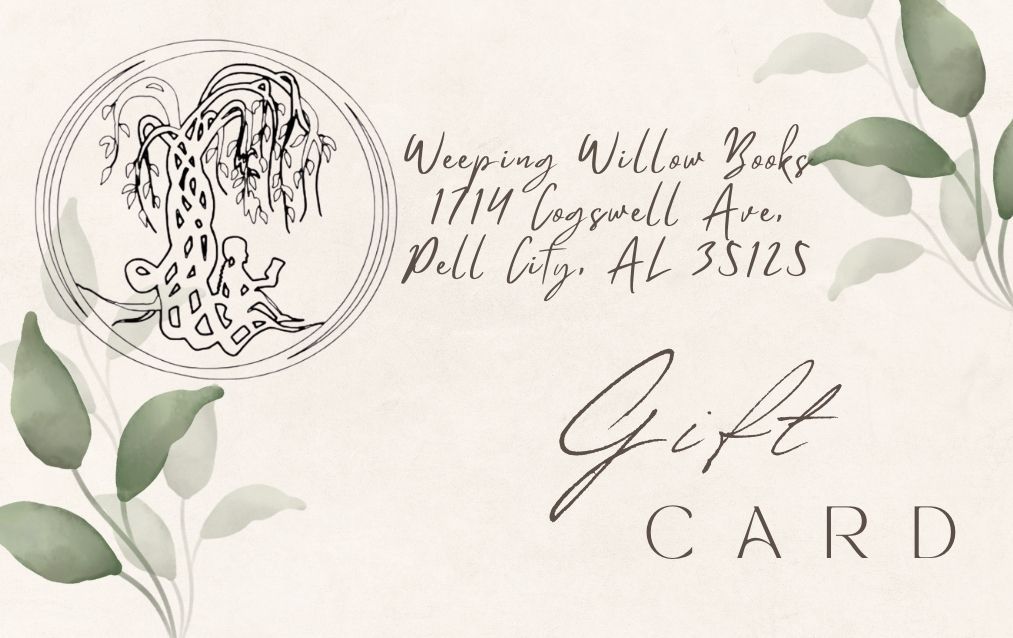 Weeping Willow Books
1714 Cogswell Ave.
Pell City, AL 35125
Gift
CARD